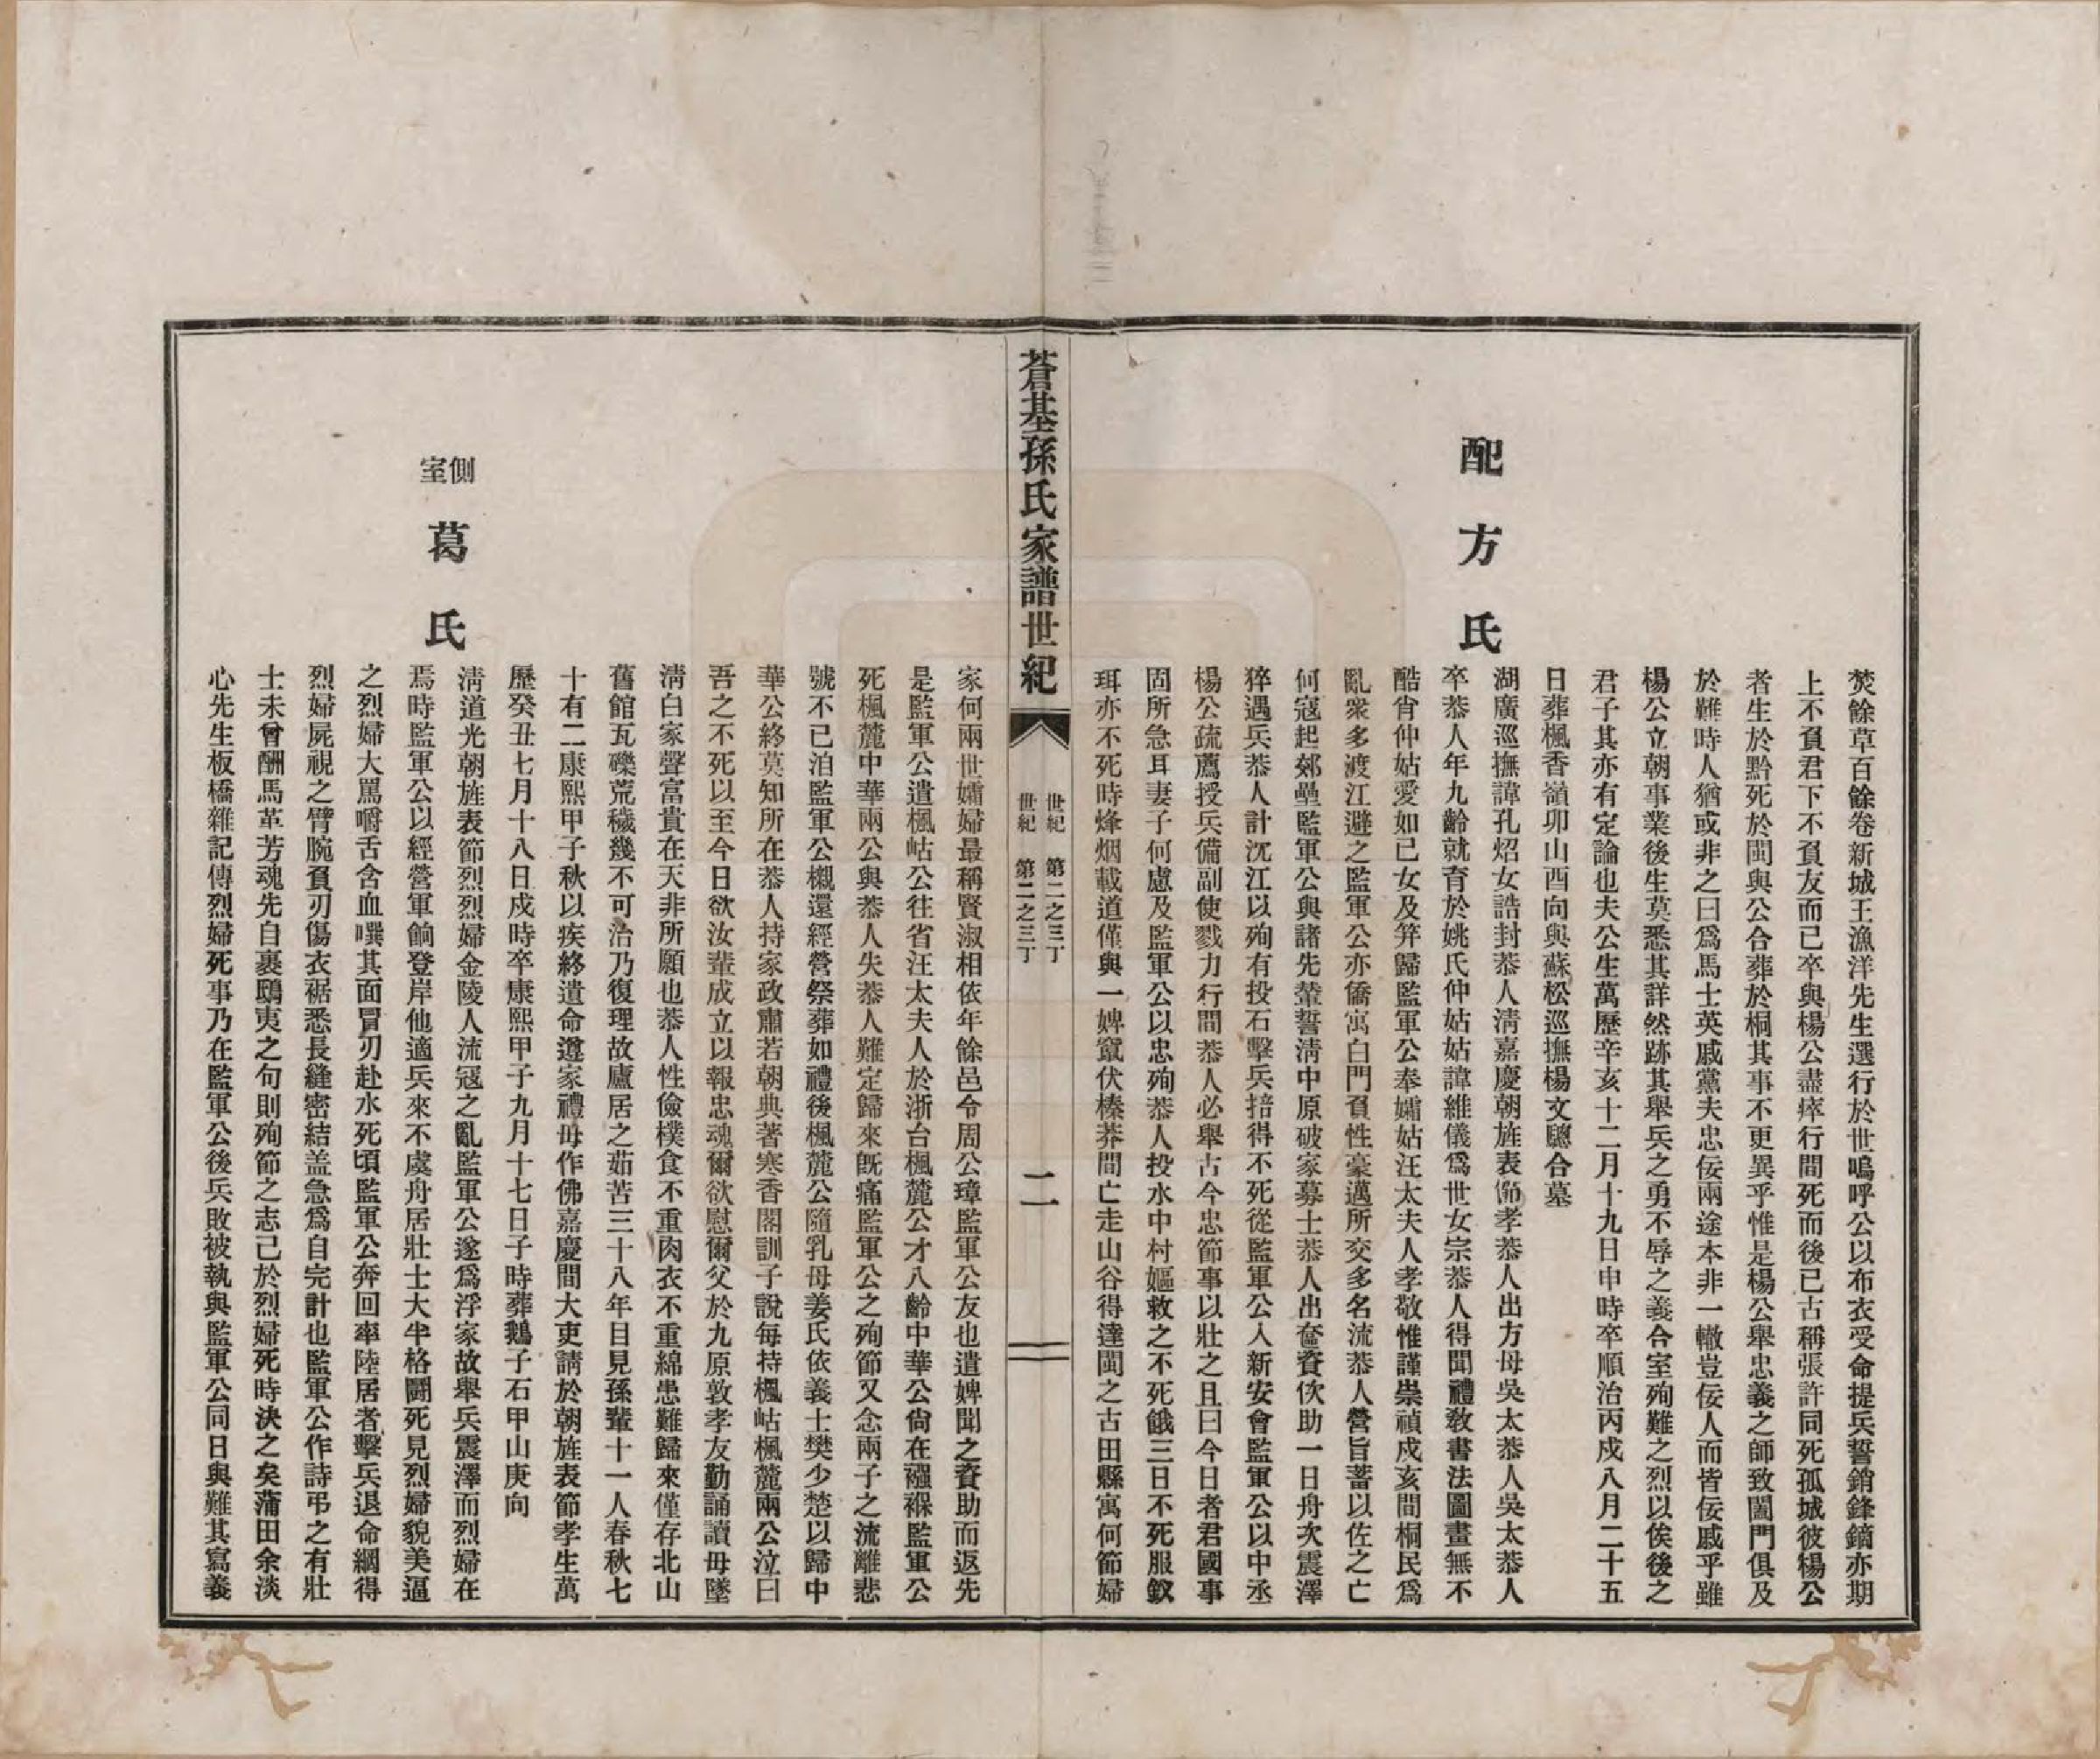 焚餘草百餘卷新城王漁洋先生選行於世嗚呼公以布衣受命提兵誓銷鋒鏑亦期
上不負君下不負友而已卒與楊公盡瘁行間死而後已古稱張許同死孤城彼楊公
者生於黔死於閩與公合葬於桐其事不更異乎惟是楊公舉忠義之師致闔門俱及
於難時人猶或非之曰爲馬士英戚黨夫忠佞兩途本非一轍豈佞人而皆佞戚乎雖
楊公立朝事業後生莫悉其詳然跡其舉兵之勇不辱之義合室殉難之烈以俟後之
君子其亦有定論也夫公生萬歷辛亥十二月十九日申時卒順治丙戍八月二十五
日葬楓香嶺卯山酉向與蘇松巡撫楊文驄合墓
配方氏
湖廣巡撫諱孔炤女誥封恭人淸嘉慶朝旌表節孝恭人出方母吳太恭人吳太恭人
卒恭人年九齡就育於姚氏仲姑姑諱維儀爲世女宗恭人得聞禮敎書法圖畫無不
酷肖仲姑愛如已女及笄歸監軍公奉孀姑汪太夫人孝敬惟謹崇禎戍亥間桐民爲
亂衆多渡江避之監軍公亦僑寓白門負性豪邁所交多名流恭人營旨蓄以佐之亡
何寇起郊壘監軍公與諸先輩誓淸中原破家募士恭人出奩資佽助一日舟次震澤
猝遇兵恭人計沈江以殉有投石擊兵掊得不死從監軍公人新安會監軍公以中丞
楊公疏薦授兵備副使戮力行間恭人必舉古今忠節事以壯之且曰今日者君國事
固所急耳妻子何慮及監軍公以忠殉恭人投水中村嫗救之不死餓三日不死服釵
珥亦不死時烽烟載道僅與一婢竄伏榛莽間亡走山谷得達閩之古田縣寓何節婦
蒼基孫氏家譜世紀
世紀 第二之三丁
世紀 第二之三丁
二
家何兩世孀婦最稱賢淑相依年餘邑令周公璋監軍公友也遣婢聞之資助而返先
是監軍公遣楓岵公往省汪太夫人於浙台楓麓公才八齡中華公尙在襁褓監軍公
死楓麓中華兩公與恭人失恭人難定歸來旣痛監軍公之殉節又念兩子之流離悲
號不已洎監軍公櫬還經營祭葬如禮後楓麓公隨乳母姜氏依義士樊少楚以歸中
華公終莫知所在恭人持家政肅若朝典著寒香閣訓子說每持楓岵楓麓兩公泣曰
吾之不死以至今日欲汝輩成立以報忠魂爾欲慰爾父於九原敦孝友勤誦讀毋墜
淸白家聲富貴在天非所願也恭人性儉樸食不重肉衣不重綿患難歸來僅存北山
舊館瓦礫荒穢幾不可治乃復理故廬居之茹苦三十八年目見孫輩十一人春秋七
十有二康熙甲子秋以疾終遺命遵家禮毋作佛嘉慶間大吏請於朝旌表節孝生萬
歷癸丑七月十八日戍時卒康熙甲子九月十七日子時葬鵝子石甲山庚向
側室葛氏
淸道光朝旌表節烈烈婦金陵人流冦之亂監軍公遂爲浮家故舉兵震澤而烈婦在
焉時監軍公以經營軍餉登岸他適兵來不虞舟居壯士大半格鬭死見烈婦貌美逼
之烈婦大罵嚼舌含血噀其面冒刃赴水死頃監軍公奔回率陸居者擊兵退命綱得
烈婦屍視之臂腕負刃傷衣裾悉長縫密結盖急爲自完計也監軍公作詩弔之有壯
士未曾酬馬革芳魂先自裹鴟夷之句則殉節之志已於烈婦死時決之矣蒲田余淡
心先生板橋雜記傳烈婦死事乃在監軍公後兵敗被執與監軍公同日與難其寫義